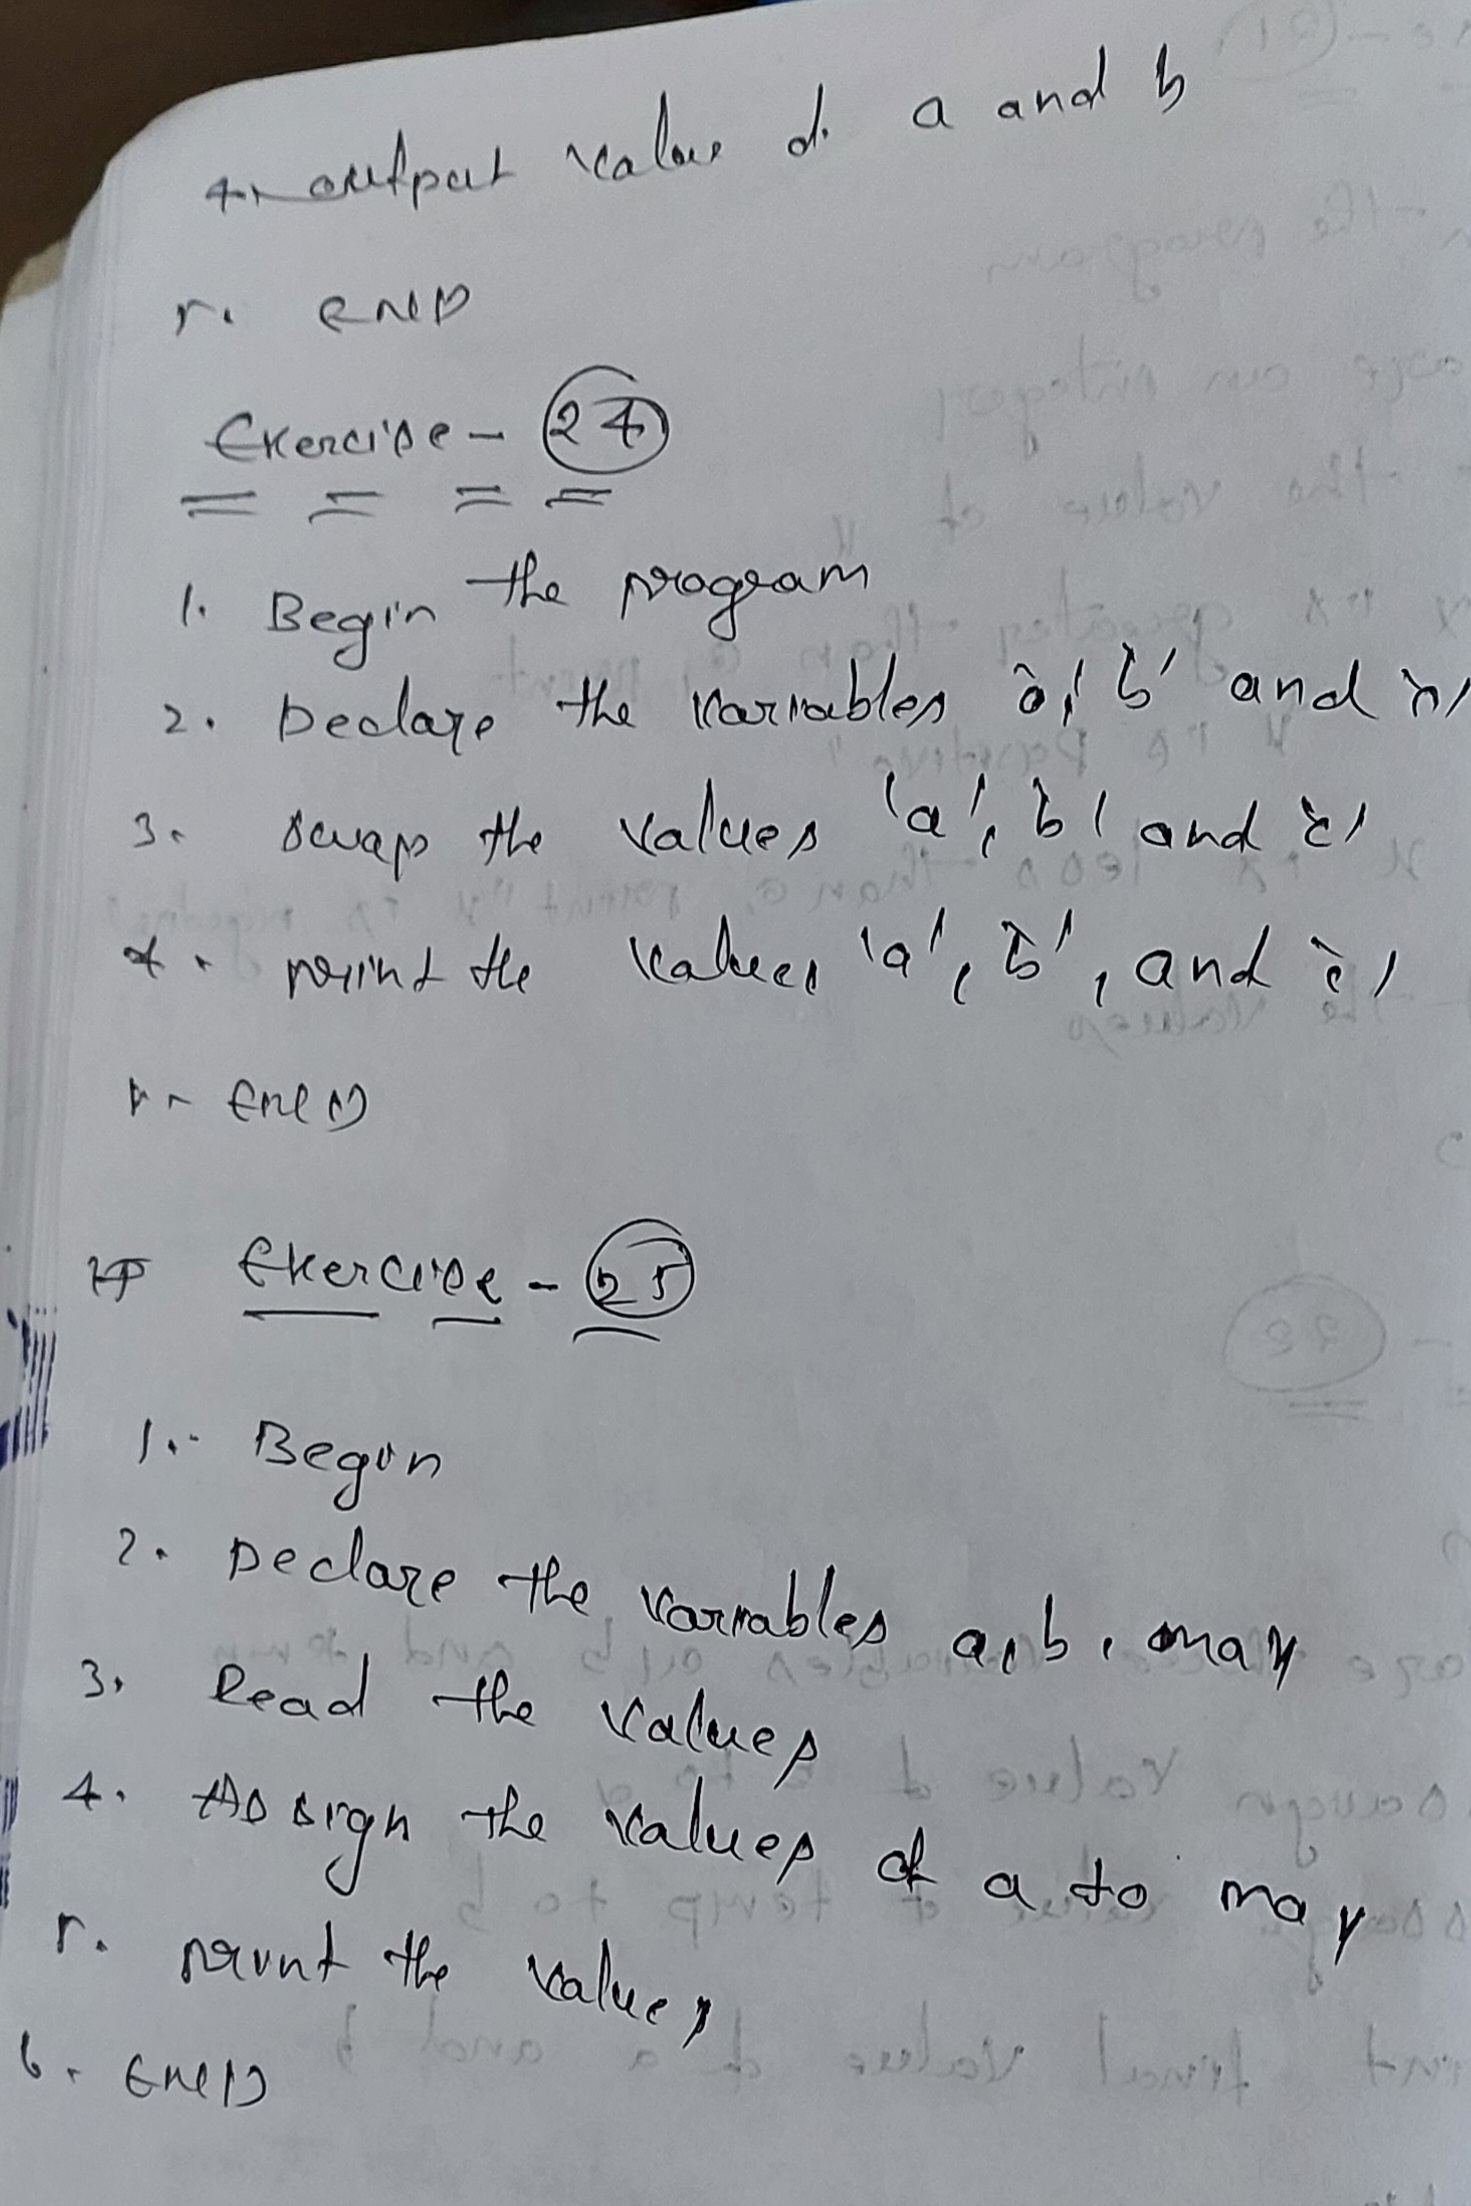 4. output value of a and b
5. END
Exercise - 24
1. Begin the program
2. Declare the variables 'a', 'b' and 'c'
3. swap the values 'a', 'b' and 'c'
4. print the values 'a', 'b', and 'c'
5. END
Exercise - 25
1. Begin
2. Declare the variables a, b, max
3. Read the values
4. Assign the values of a to max
5. print the values
6. END